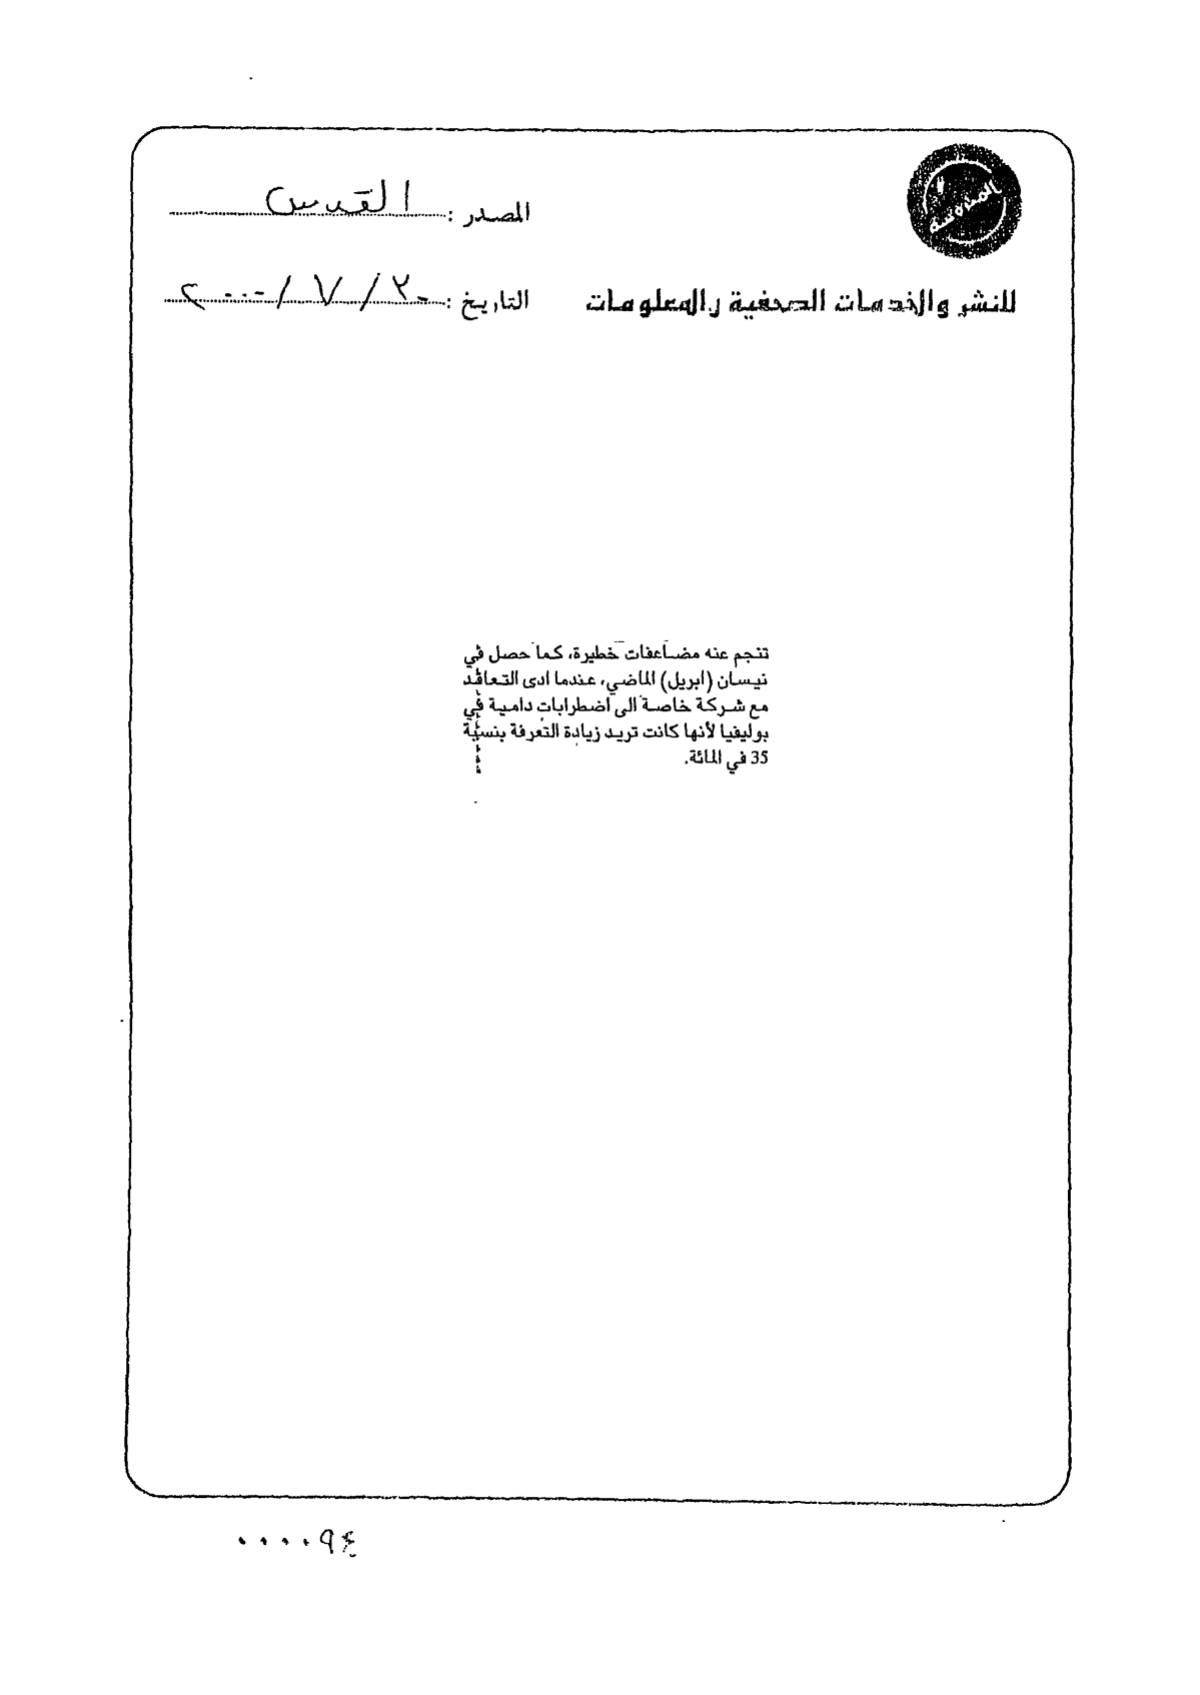 المصدر : القدس
للنشر والخدمات الصحفية والمعلومات
التاريخ : ٢٠ / ٧ / ٢٠٠٠
تنجم عنه مضاعفات خطيرة، كما حصل في
نيسان (ابريل) الماضي، عندما ادى التعاقد
مع شركة خاصة الى اضطرابات دامية في
بوليفيا لأنها كانت تريد زيادة التعرفة بنسبة
35 في المائة.
٠٠٠٠٩٤